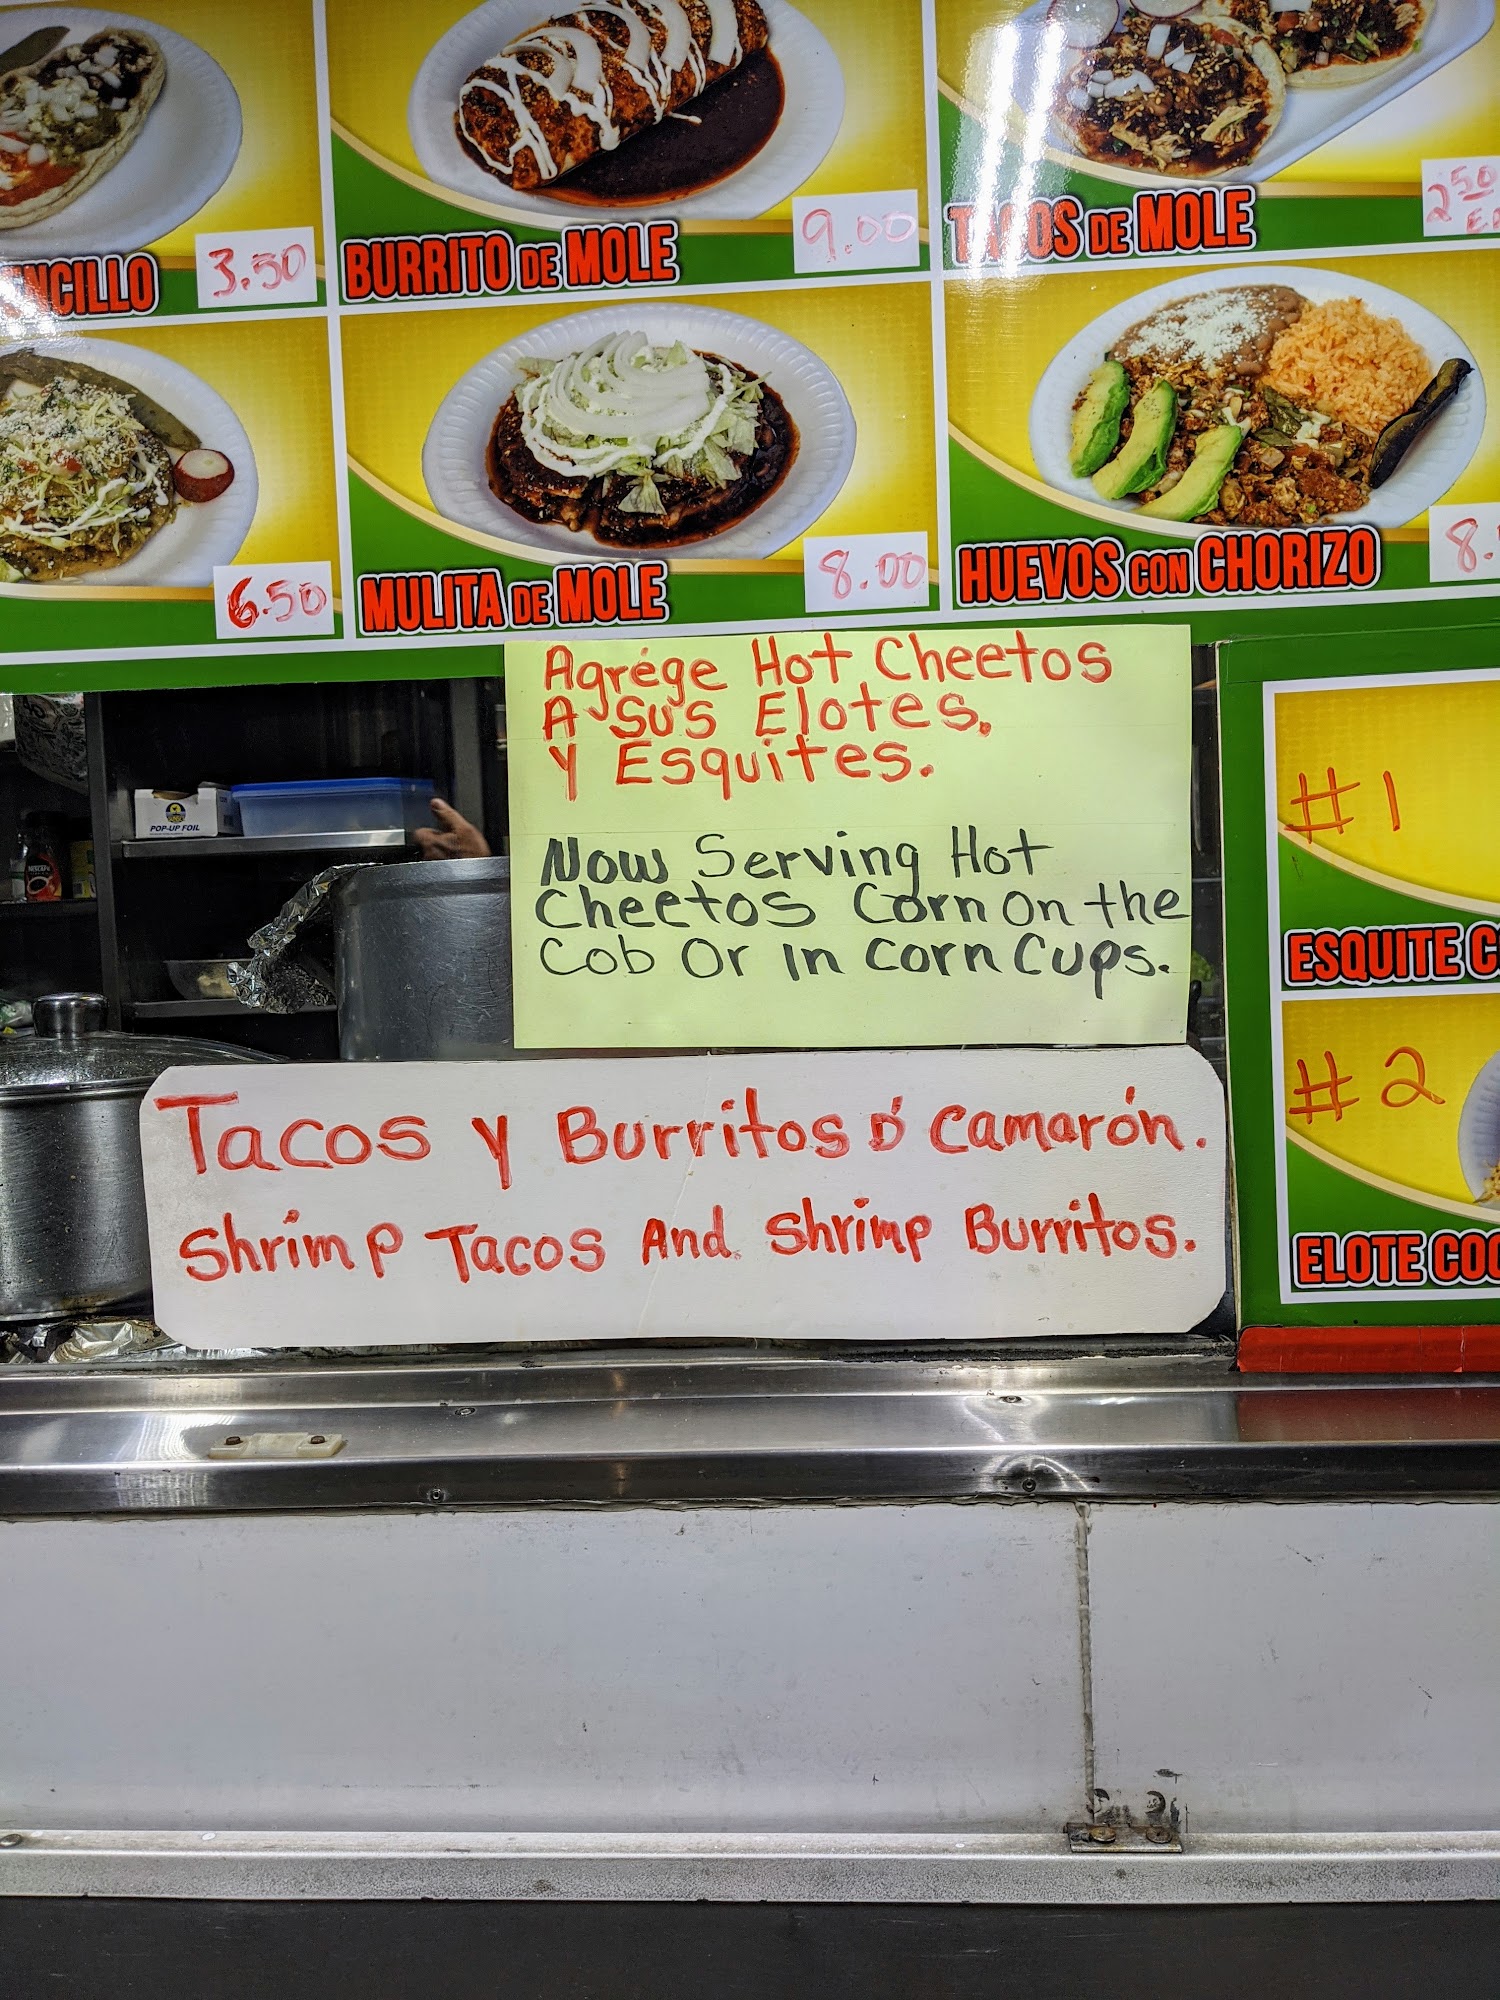 3.50
BURRITO DE MOLE
9.00
TACOS DE MOLE
2.50
6.50
MULITA DE MOLE
8.00
HUEVOS CON CHORIZO
8.
Agrége Hot Cheetos
A Sus Elotes.
Y Esquites.
Now Serving Hot
Cheetos Corn On the
Cob Or In Corn Cups.
POP-UP FOIL
NESCAFÉ
#1
ESQUITE C
#2
ELOTE COC
Tacos y Burritos D' Camarón.
Shrimp Tacos And Shrimp Burritos.